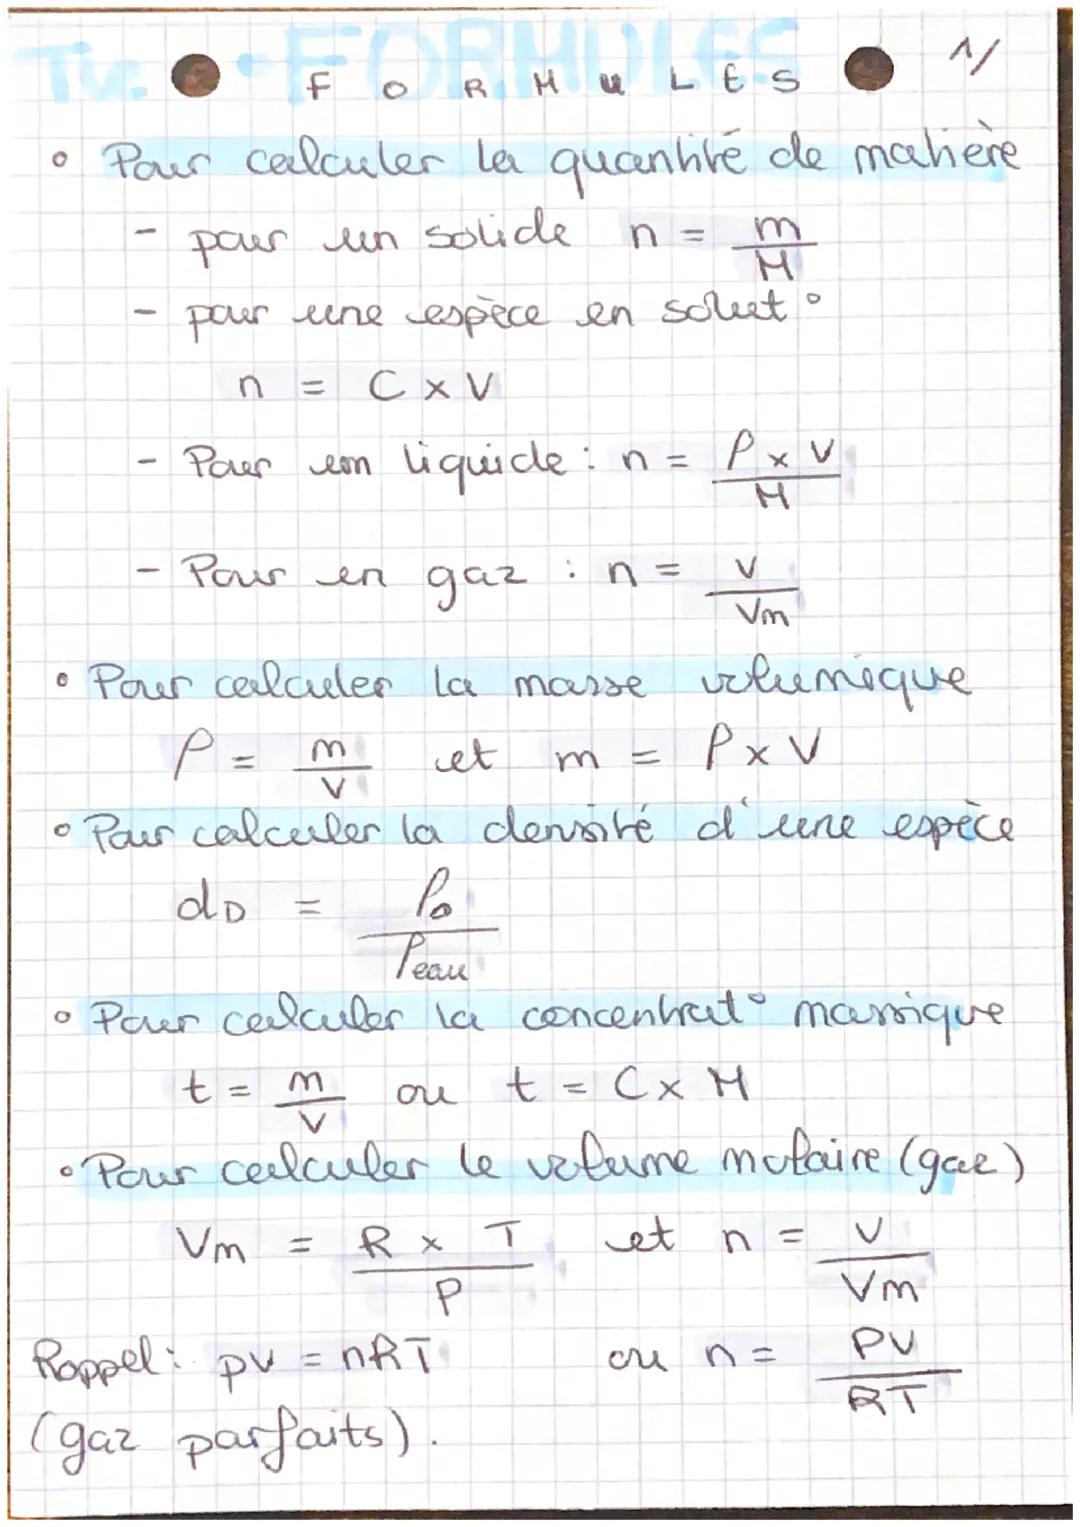 1/
FORMULES
• Pour calculer la quantité de matière
- pour un solide n = m/M
- pour une espèce en solut°
n = C x V
- Pour un liquide : n = ρ x V / M
- Pour un gaz : n = V / Vm
• Pour calculer la masse volumique
ρ = m/V et m = ρ x V
• Pour calculer la densité d'une espèce
dD = ρD / ρeau
• Pour calculer la concentrat° massique
t = m/V ou t = C x M
• Pour calculer le volume molaire (gaz)
Vm = R x T / P et n = V / Vm
Rappel : pV = nRT ou n = PV / RT
(gaz parfaits).